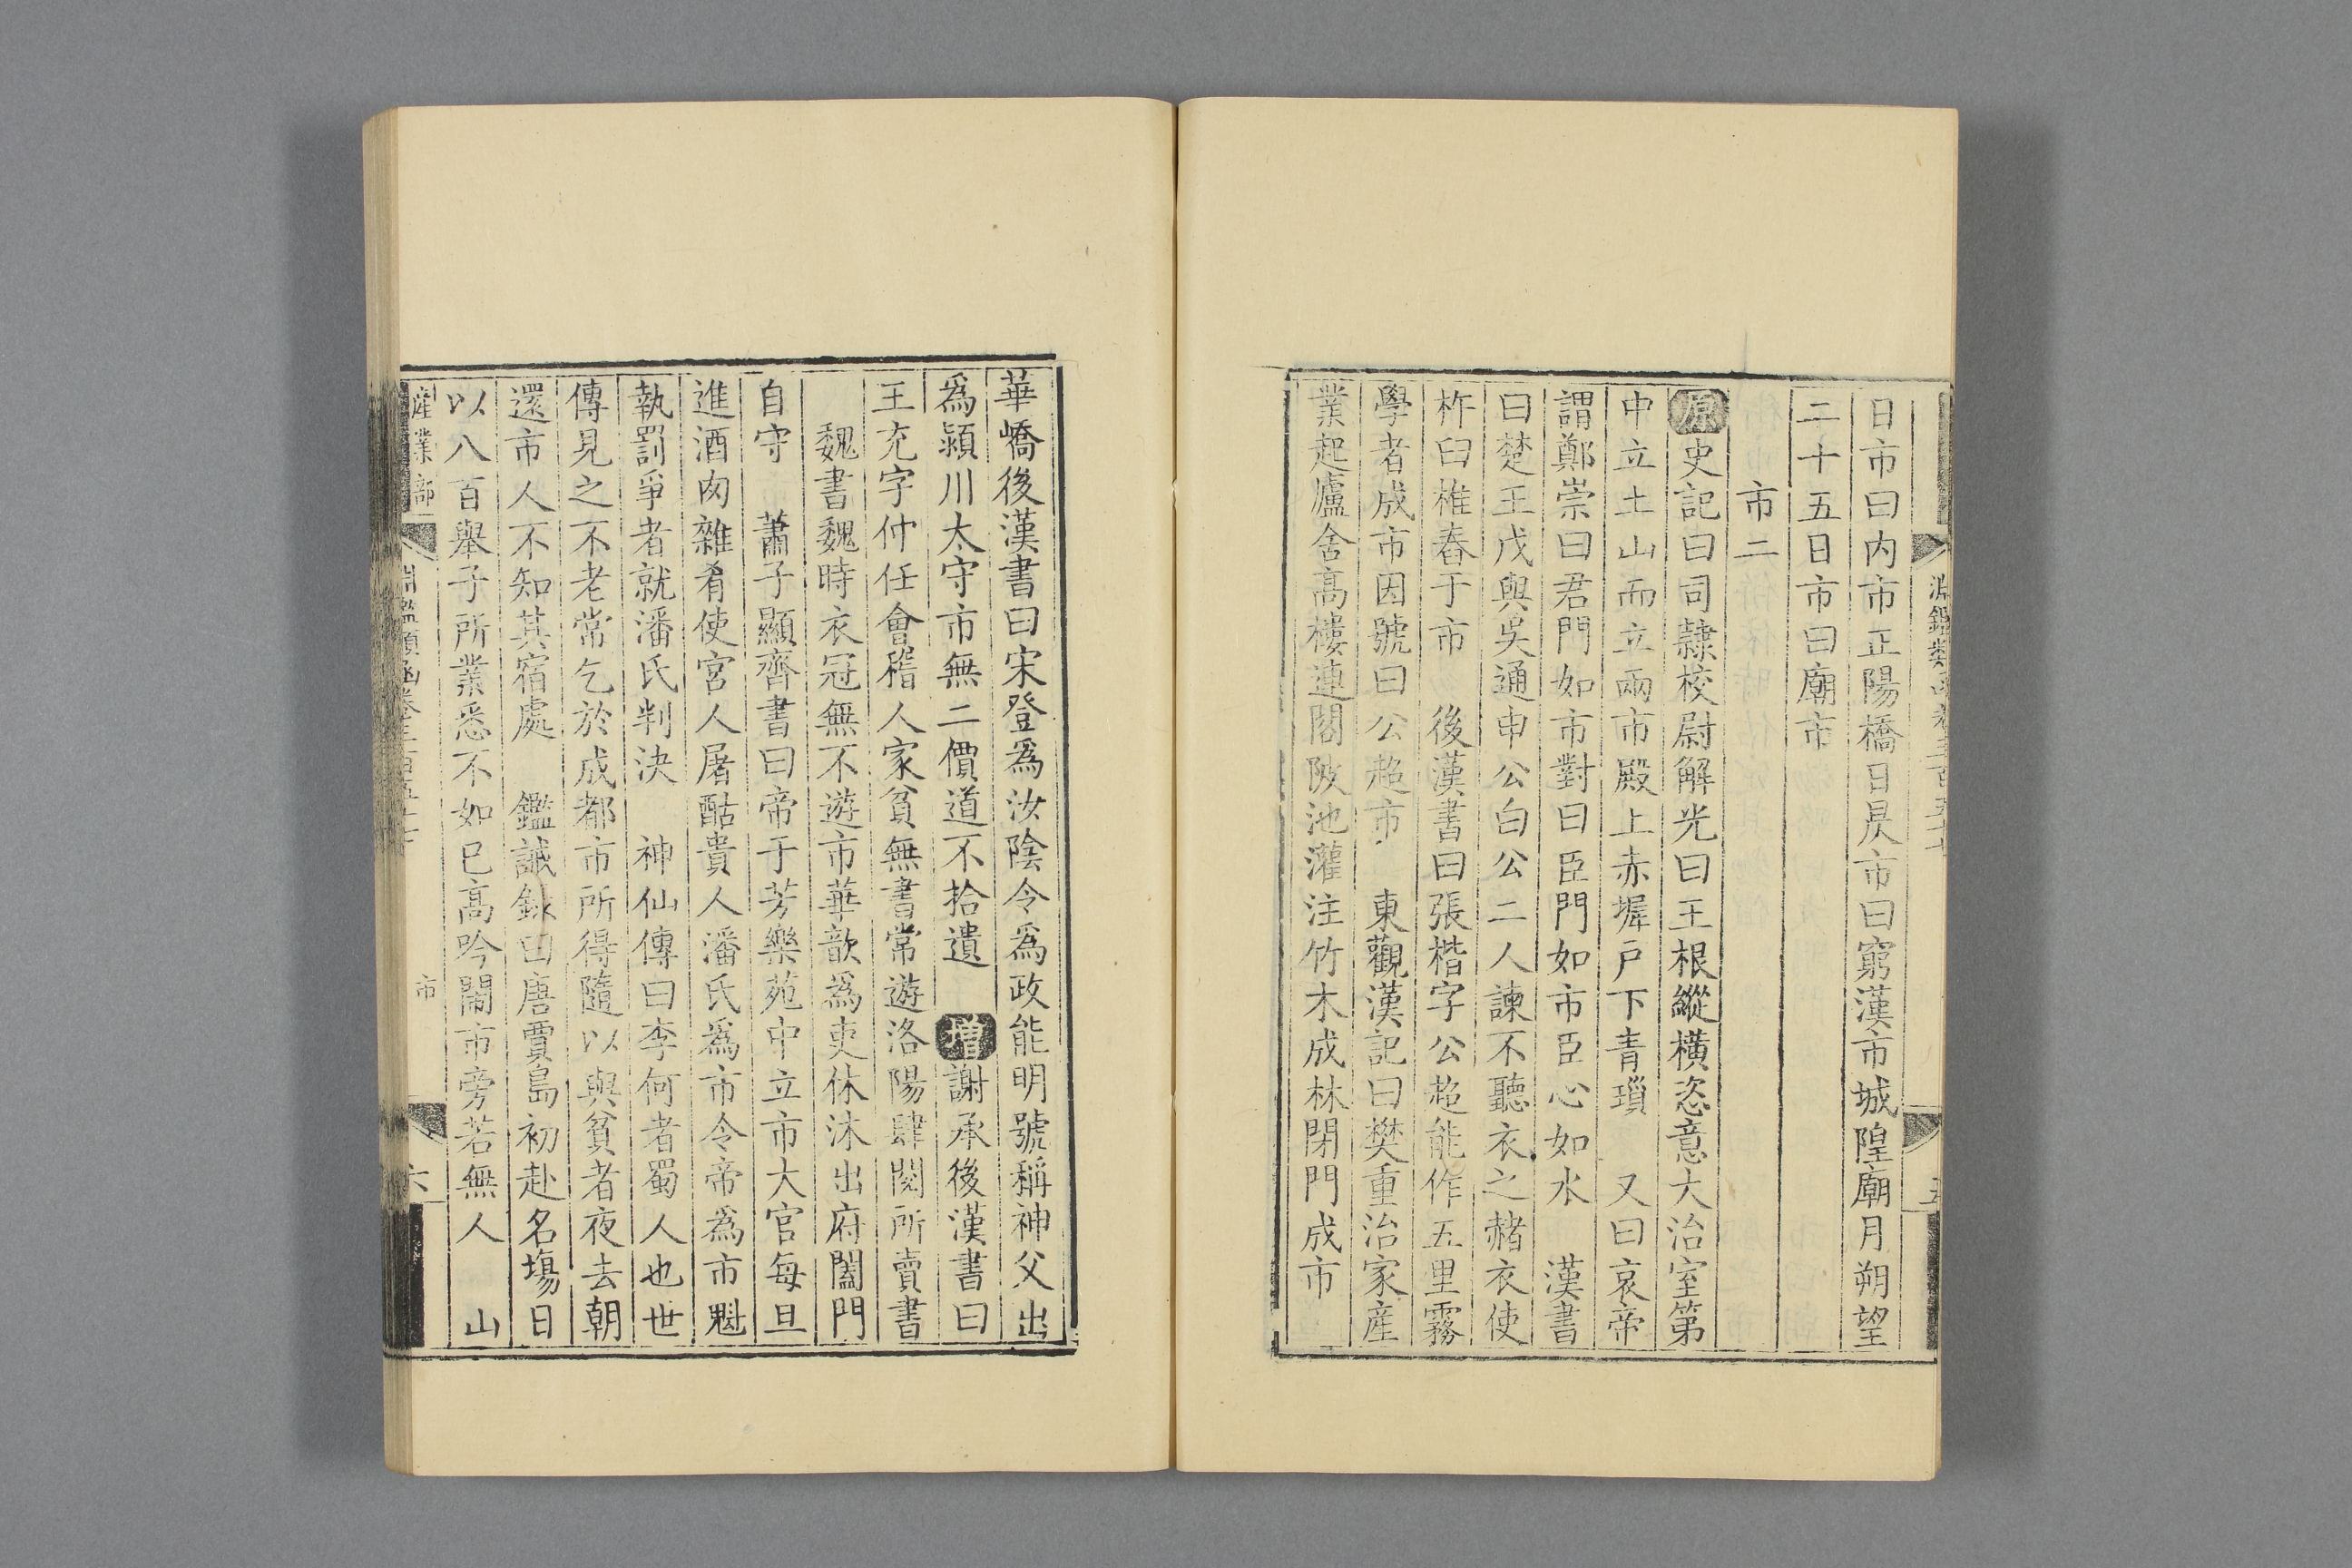 日市曰内市正陽橋日昃市曰窮漢市城隍廟月朔望
二十五日市曰廟市
市二
原史記曰司隷校尉解光曰王根縱橫恣意大治室第
中立土山而立兩市殿上赤墀戸下青瑣　又曰哀帝
謂鄭崇曰君門如市對曰臣門如市臣心如水　漢書
曰楚王戊與吳通申公白公二人諫不聽衣之赭衣使
杵臼椎舂于市　後漢書曰張楷字公超能作五里霧
學者成市因號曰公超市　東觀漢記曰樊重治家産
業起廬舍高樓連閣陂池灌注竹木成林閉門成市
華嶠後漢書曰宋登爲汝陰令爲政能明號稱神父出
爲潁川太守市無二價道不拾遺　增謝承後漢書曰
王充字仲任會稽人家貧無書常遊洛陽肆閱所賣書
魏書魏時衣冠無不遊市華歆爲吏休沐出府闔門
自守　蕭子顯齊書曰帝于芳樂苑中立市大官每旦
進酒肉雜肴使宮人屠酤貴人潘氏爲市令帝爲市魁
執罰爭者就潘氏判決　神仙傳曰李何者蜀人也世
傳見之不老常乞於成都市所得隨以與貧者夜去朝
還市人不知其宿處　鑑誡錄曰唐賈島初赴名塲日
以八百舉子所業悉不如已高吟閙市旁若無人　山
産業部　淵鑑類函卷三百五十七　市　六